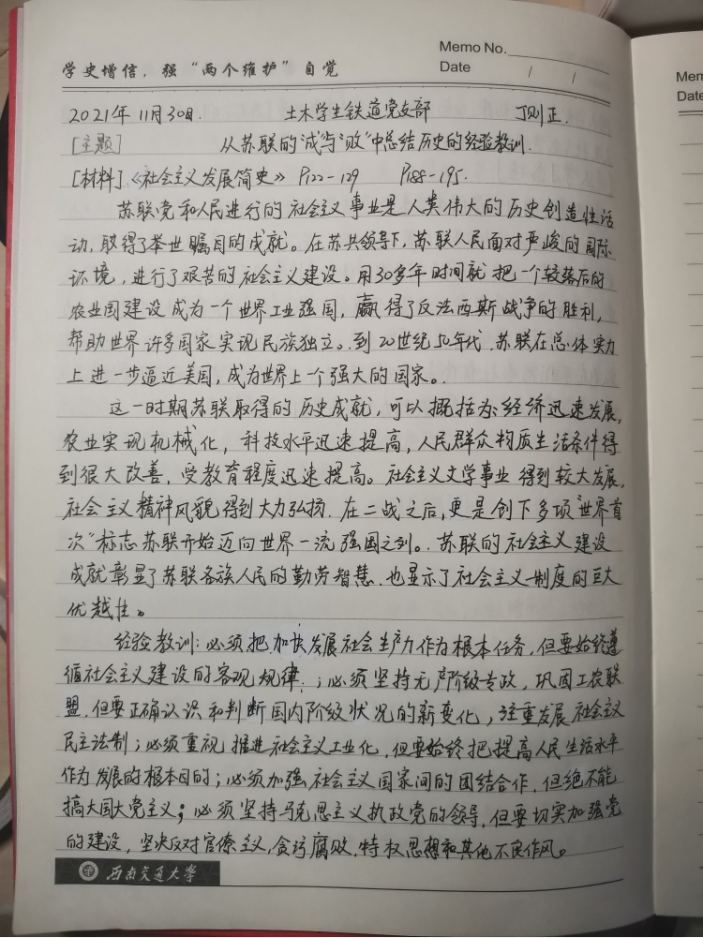 Memo No.
学史增信，强“两个维护”自觉
Date / /
2021年11月30日. 土木学生铁道党支部 丁则正.
[主题] 从苏联的“成”与“败”中总结历史的经验教训.
[材料]《社会主义发展简史》 P122-129 P188-195.
苏联党和人民进行的社会主义事业是人类伟大的历史创造性活
动，取得了举世瞩目的成就。在苏共领导下，苏联人民面对严峻的国际
环境，进行了艰苦的社会主义建设。用30多年时间就把一个较落后的
农业国建设成为一个世界工业强国，赢得了反法西斯战争的胜利，
帮助世界许多国家实现民族独立。到20世纪50年代，苏联在总体实力
上进一步逼近美国，成为世界上一个强大的国家。
这一时期苏联取得的历史成就，可以概括为：经济迅速发展，
农业实现机械化，科技水平迅速提高，人民群众物质生活条件得
到很大改善，受教育程度迅速提高。社会主义文学事业得到较大发展，
社会主义精神风貌得到大力弘扬.在二战之后，更是创下多项“世界首
次”标志苏联开始迈向世界一流强国之列。苏联的社会主义建设
成就彰显了苏联各族人民的勤劳智慧，也显示了社会主义制度的巨大
优越性。
经验教训：必须把加快发展社会生产力作为根本任务，但要始终遵
循社会主义建设的客观规律；必须坚持无产阶级专政，巩固工农联
盟，但要正确认识和判断国内阶级状况的新变化，注重发展社会主义
民主法制；必须重视推进社会主义工业化，但要始终把提高人民生活水平
作为发展的根本目的；必须加强社会主义国家间的团结合作，但绝不能
搞大国大党主义；必须坚持马克思主义执政党的领导，但要切实加强党
的建设，坚决反对官僚主义，贪污腐败，特权思想和其他不良作风。
西南交通大学
Mem
Date